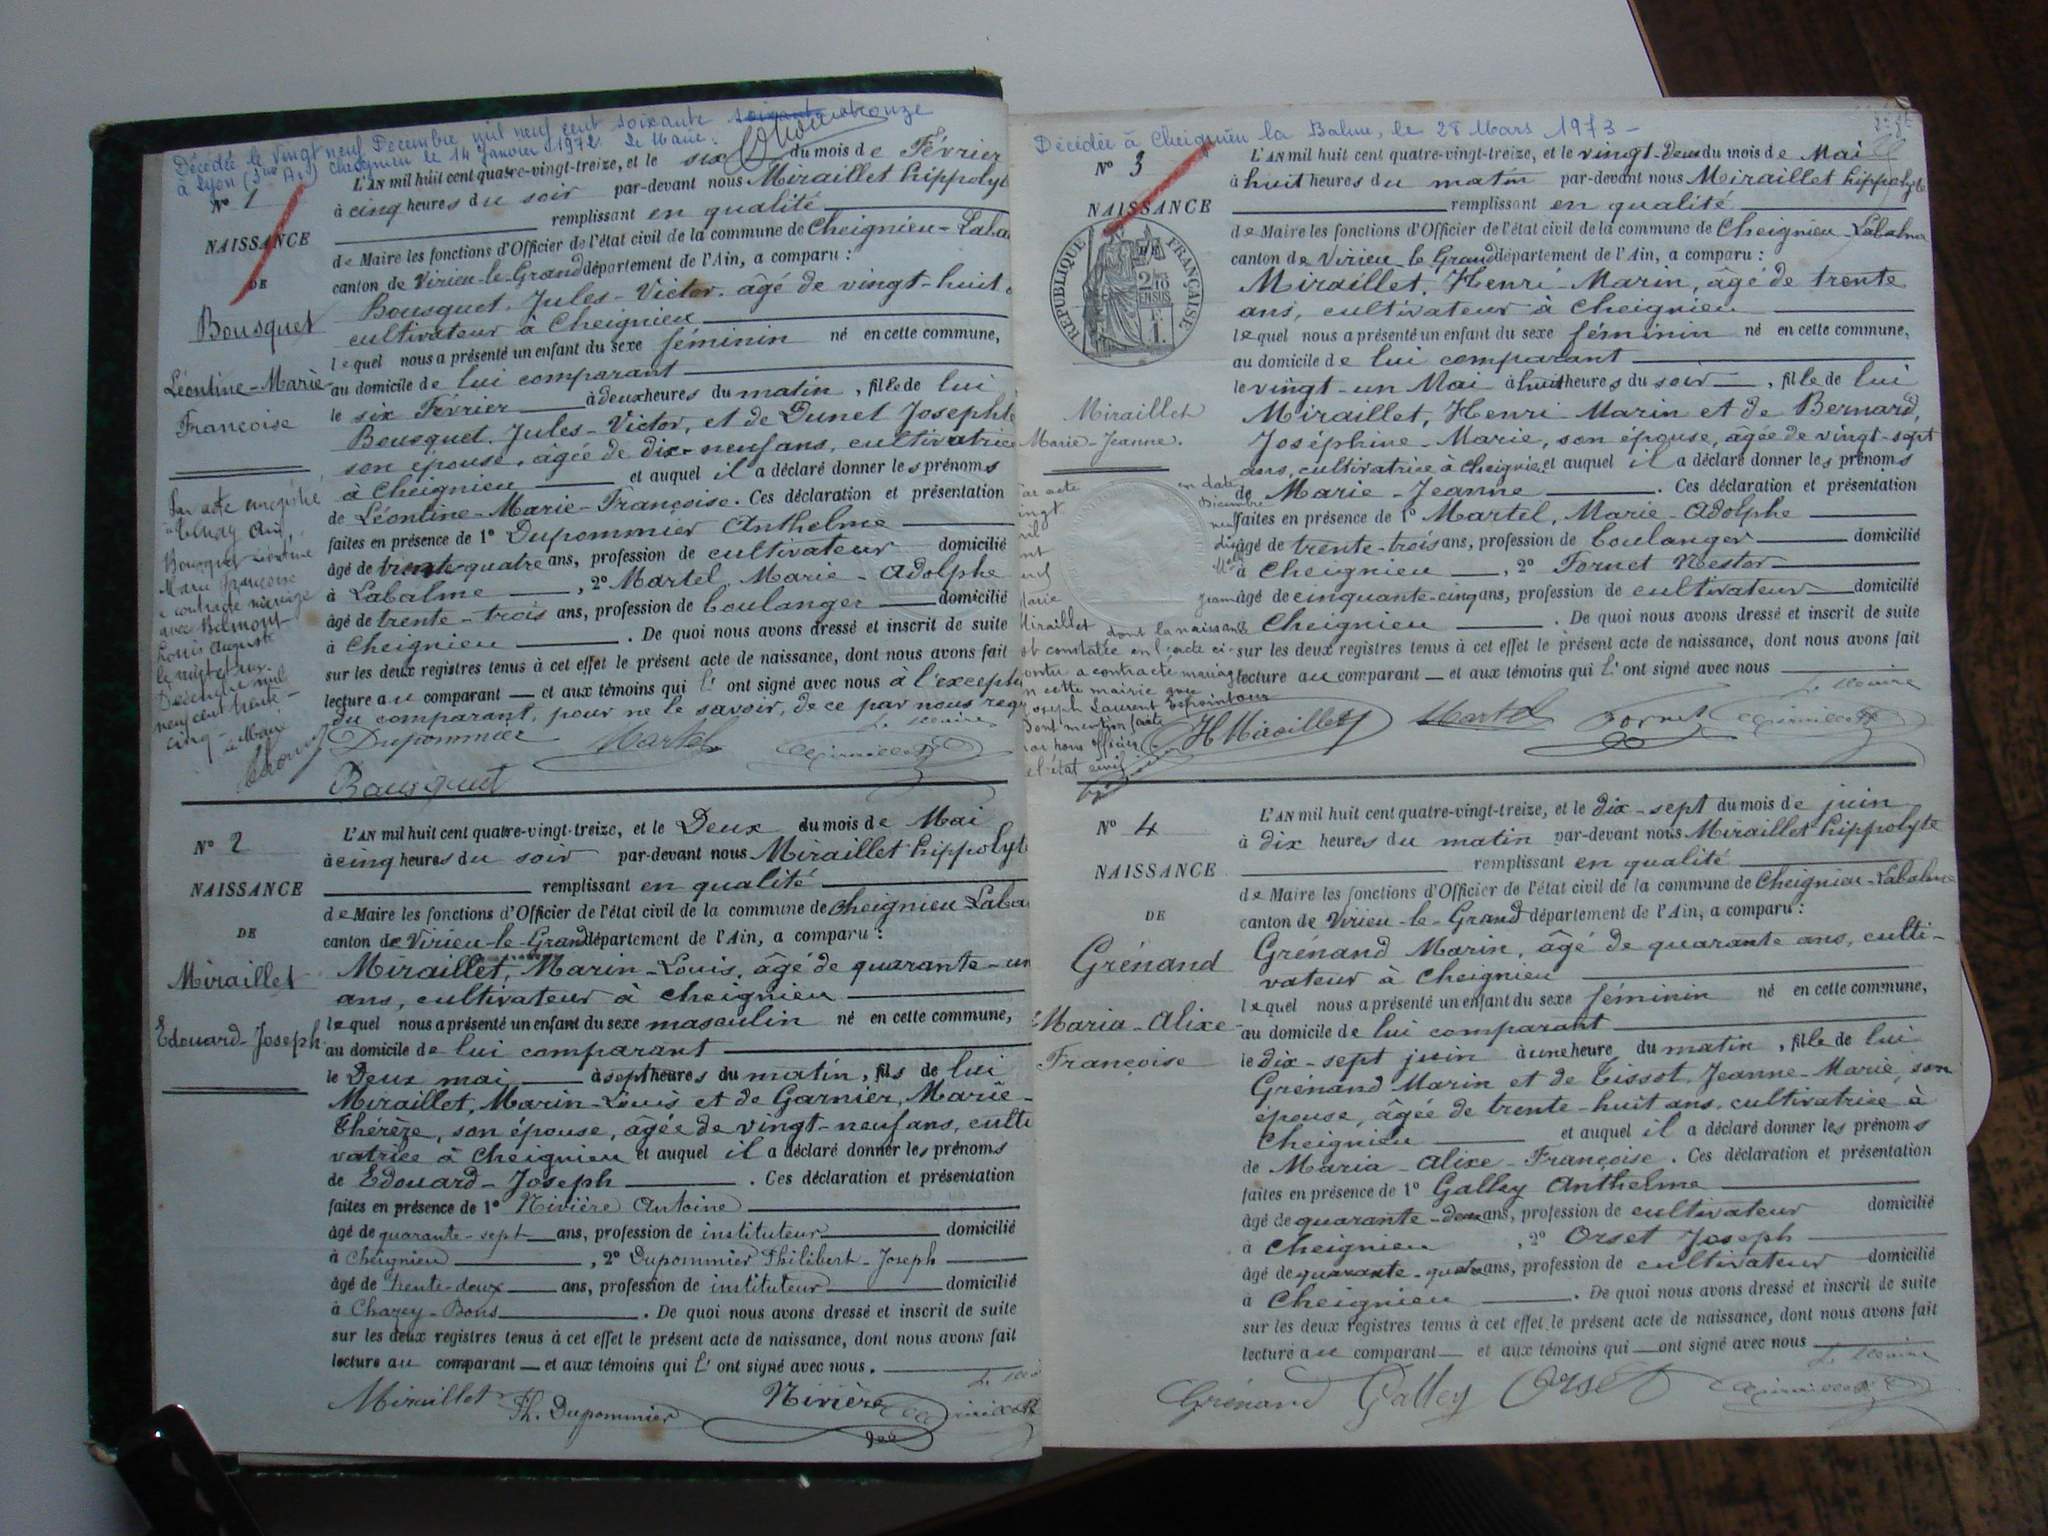 Décédée le vingt neuf Décembre mil neuf cent soixante soixante onze
à Lyon (3me Art) Cheignieu le 14 Janvier 1972. Le Maire:
N° 1
NAISSANCE
DE
Bousquet
Léontine-Marie-
Françoise
L'AN mil huit cent quatre-vingt-treize, et le six du mois de Février
à cinq heures du soir par-devant nous Miraillet hippolyt
remplissant en qualité
de Maire les fonctions d'Officier de l'état civil de la commune de Cheignieu-Laba
canton de Virieu-le-Grand département de l'Ain, a comparu :
Bousquet, Jules-Victor, âgé de vingt-huit
cultivateur à Cheignieu
lequel nous a présenté un enfant du sexe féminin né en cette commune,
au domicile de lui comparant
le six Février à deux heures du matin, fille de lui
Bousquet, Jules-Victor, et de Dunet Josephte
son épouse, agée de dix-neuf ans, cultivatrice
à Cheignieu et auquel il a déclaré donner les prénoms
de Léontine-Marie-Françoise. Ces déclaration et présentation
faites en présence de 1° Dupommier Anthelme
âgé de trente quatre ans, profession de cultivateur domicilié
à Labalme, 2° Martel, Marie-Adolphe
âgé de trente-trois ans, profession de boulanger domicilié
à Cheignieu. De quoi nous avons dressé et inscrit de suite
sur les deux registres tenus à cet effet le présent acte de naissance, dont nous avons fait
lecture au comparant et aux témoins qui l' ont signé avec nous à l'excepti
du comparant, pour ne le savoir, de ce par nous requ
Le Maire
Dupommier Martel
Bousquet
Par acte enregistré
à Tenay Ain,
Bousquet Léontine
Marie Françoise
a contracté mariage
avec Belmont
Louis Auguste
le vingt et un
Décembre mil
neuf cent trente-
cinq-
Le Maire
N° 2
NAISSANCE
DE
Miraillet
Edouard-Joseph
L'AN mil huit cent quatre-vingt-treize, et le Deux du mois de Mai
à cinq heures du soir par-devant nous Miraillet hippolyt
remplissant en qualité
de Maire les fonctions d'Officier de l'état civil de la commune de Cheignieu-Laba
canton de Virieu-le-Grand département de l'Ain, a comparu :
Miraillet, Marin-Louis, âgé de quarante-un
ans, cultivateur à Cheignieu
lequel nous a présenté un enfant du sexe masculin né en cette commune,
au domicile de lui comparant
le Deux mai à sept heures du matin, fils de lui
Miraillet, Marin-Louis et de Garnier, Marie-
Thérèze, son épouse, âgée de vingt-neuf ans, culti
vatrice à Cheignieu et auquel il a déclaré donner les prénoms
de Edouard-Joseph. Ces déclaration et présentation
faites en présence de 1° Nivière Antoine
âgé de quarante-sept ans, profession de instituteur domicilié
à Cheignieu, 2° Dupommier Philibert-Joseph
âgé de trente-deux ans, profession de instituteur domicilié
à Chazey-Bons. De quoi nous avons dressé et inscrit de suite
sur les deux registres tenus à cet effet le présent acte de naissance, dont nous avons fait
lecture au comparant et aux témoins qui l' ont signé avec nous.
Miraillet Ph. Dupommier Nivière
Décédée à Cheignieu la Balme, le 28 Mars 1973-
N° 3
NAISSANCE
RÉPUBLIQUE FRANÇAISE
2/10
EN SUS
1 F.
Miraillet
Marie-Jeanne.
L'AN mil huit cent quatre-vingt-treize, et le vingt-deux du mois de Mai
à huit heures du matin par-devant nous Miraillet hippolyte
remplissant en qualité
de Maire les fonctions d'Officier de l'état civil de la commune de Cheignieu-Labalme
canton de Virieu-le-Grand département de l'Ain, a comparu :
Miraillet, Henri-Marin, âgé de trente
ans, cultivateur à Cheignieu
lequel nous a présenté un enfant du sexe féminin né en cette commune,
au domicile de lui comparant
le vingt-un Mai à huit heures du soir, fille de lui
Miraillet, Henri-Marin et de Bernard,
Joséphine-Marie, son épouse, âgée de vingt-sept
ans, cultivatrice à Cheignieu et auquel il a déclaré donner les prénoms
de Marie-Jeanne. Ces déclaration et présentation
faites en présence de 1° Martel, Marie-Adolphe
âgé de trente-trois ans, profession de boulanger domicilié
à Cheignieu, 2° Fornet Nestor
âgé de cinquante-cinq ans, profession de cultivateur domicilié
à Cheignieu. De quoi nous avons dressé et inscrit de suite
sur les deux registres tenus à cet effet le présent acte de naissance, dont nous avons fait
lecture au comparant et aux témoins qui l' ont signé avec nous
Le Maire
H Miraillet Martel Fornet
acte en date
vingt Décembre
Marie Jeanne
Miraillet dont la naissance
est constatée en l'acte ci-
contre a contracté mariage
en cette mairie avec
Joseph Laurent
Dont mention faite
par nous officier
de l'état civil
N° 4
NAISSANCE
DE
Grénand
Maria-Alixe-
Françoise
L'AN mil huit cent quatre-vingt-treize, et le dix-sept du mois de juin
à dix heures du matin par-devant nous Miraillet hippolyte
remplissant en qualité
de Maire les fonctions d'Officier de l'état civil de la commune de Cheignieu-Labalme
canton de Virieu-le-Grand département de l'Ain, a comparu :
Grénand Marin, âgé de quarante ans, culti-
vateur à Cheignieu
lequel nous a présenté un enfant du sexe féminin né en cette commune,
au domicile de lui comparant
le dix-sept juin à une heure du matin, fille de lui
Grénand Marin et de Tissot, Jeanne-Marie, son
épouse, âgée de trente-huit ans, cultivatrice à
Cheignieu et auquel il a déclaré donner les prénoms
de Maria-Alixe-Françoise. Ces déclaration et présentation
faites en présence de 1° Galley Anthelme
âgé de quarante-deux ans, profession de cultivateur domicilié
à Cheignieu, 2° Orset Joseph
âgé de quarante-quatre ans, profession de cultivateur domicilié
à Cheignieu. De quoi nous avons dressé et inscrit de suite
sur les deux registres tenus à cet effet le présent acte de naissance, dont nous avons fait
lecture au comparant et aux témoins qui ont signé avec nous
Le Maire
Grénand Galley Orset